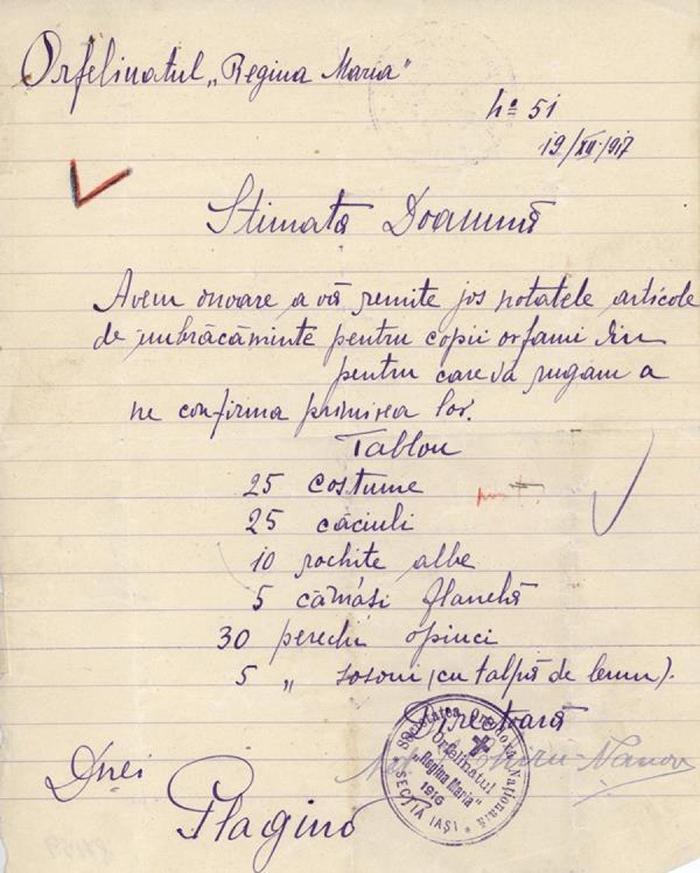 Orfelinatul „Regina Maria"
No 51
19/XII/917
Stimată Doamnă
Avem onoare a vă remite jos notatele articole
de îmbrăcăminte pentru copii orfani din
pentru care vă rugam a
ne confirma primirea lor.
Tablou
25 costume
25 căciuli
10 rochite albe
5 cămăsi flanelă
30 perechi opinci
5 „ sosoni (cu talpă de lemn).
Directoară
Societatea Ortodoxă Națională
Orfelinatul
„Regina Maria"
1916
* SECȚIA IAȘI *
Dnei
Plagino